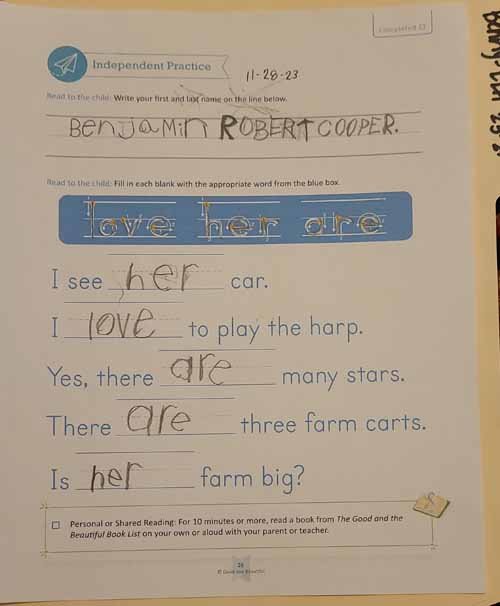 Completed
Independent Practice
11-28-23
Read to the child: Write your first and last name on the line below.
BenjaMin ROBERT COOPER.
Read to the child: Fill in each blank with the appropriate word from the blue box.
love her are
I see her car.
I love to play the harp.
Yes, there are many stars.
There are three farm carts.
Is her farm big?
Personal or Shared Reading: For 10 minutes or more, read a book from The Good and the
Beautiful Book List on your own or aloud with your parent or teacher.
© Good and Beautiful